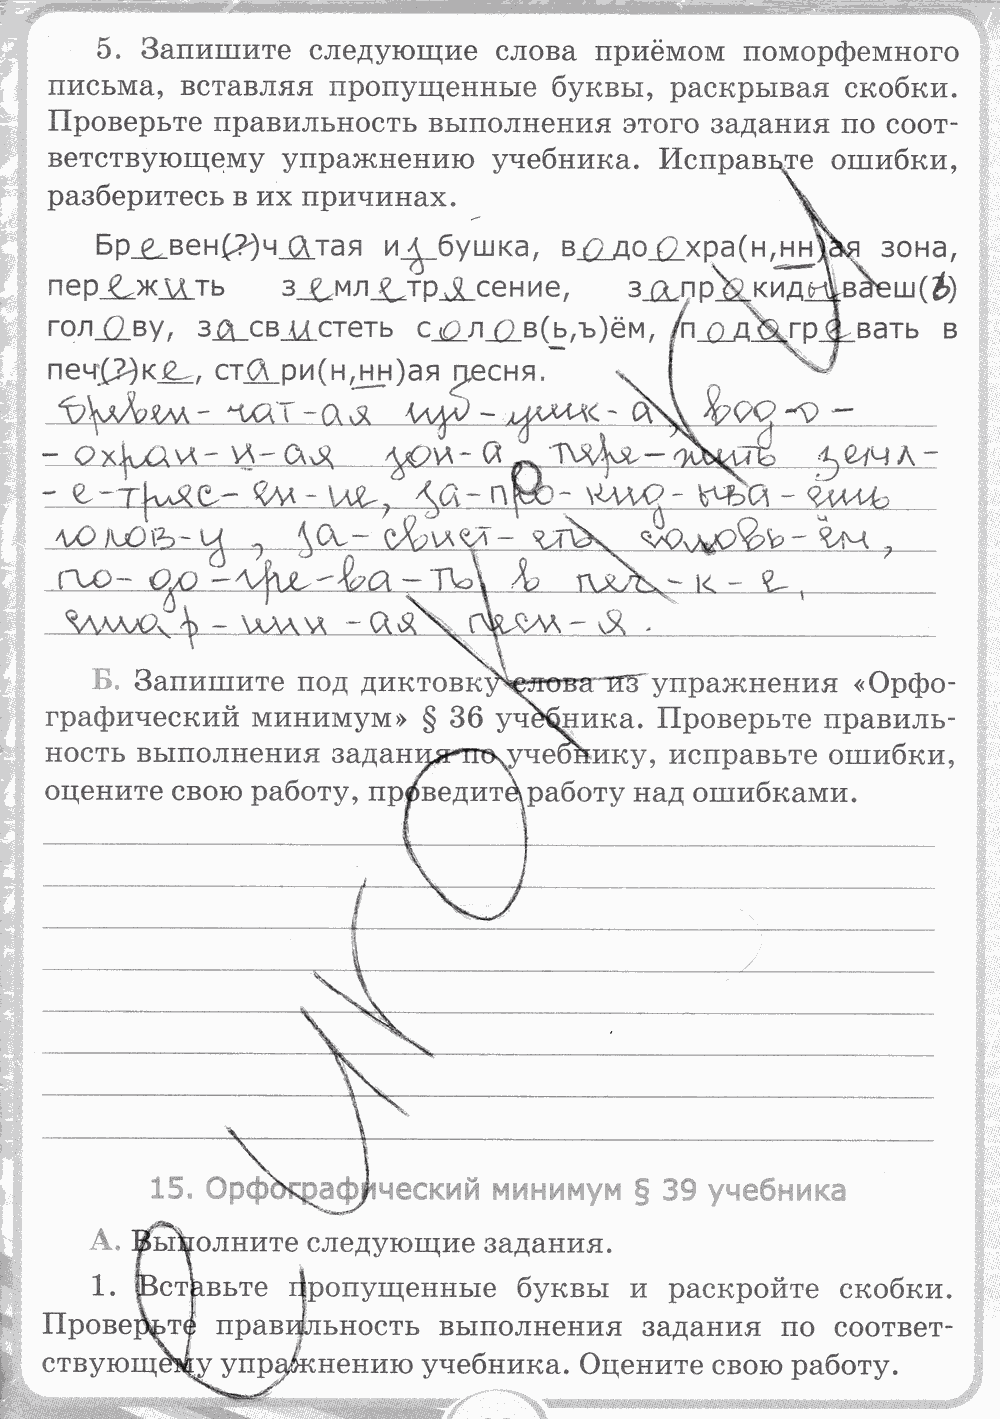 5. Запишите следующие слова приёмом поморфемного
письма, вставляя пропущенные буквы, раскрывая скобки.
Проверьте правильность выполнения этого задания по соот-
ветствующему упражнению учебника. Исправьте ошибки,
разберитесь в их причинах.
Бревен(?)чатая избушка, водоохра(н,нн)ая зона,
пережить землетрясение, запрокидываеш(ь)
голову, засвистеть соловв(ь,ъ)ём, подогревать в
печ(?)ке, стари(н,нн)ая песня.
Бревен-чат-ая изб-ушк-а, вод-о-
-охран-н-ая зон-а, пере-жить земл-
-е-тряс-ен-ие, за-про-кид-ыва-ешь
голов-у, за-свист-еть соловь-ём,
по-до-гре-ва-ть в печ-к-е,
стар-инн-ая песн-я.
Б. Запишите под диктовку слова из упражнения «Орфо-
графический минимум» § 36 учебника. Проверьте правиль-
ность выполнения задания по учебнику, исправьте ошибки,
оцените свою работу, проведите работу над ошибками.
15. Орфографический минимум § 39 учебника
А. Выполните следующие задания.
1. Вставьте пропущенные буквы и раскройте скобки.
Проверьте правильность выполнения задания по соответ-
ствующему упражнению учебника. Оцените свою работу.